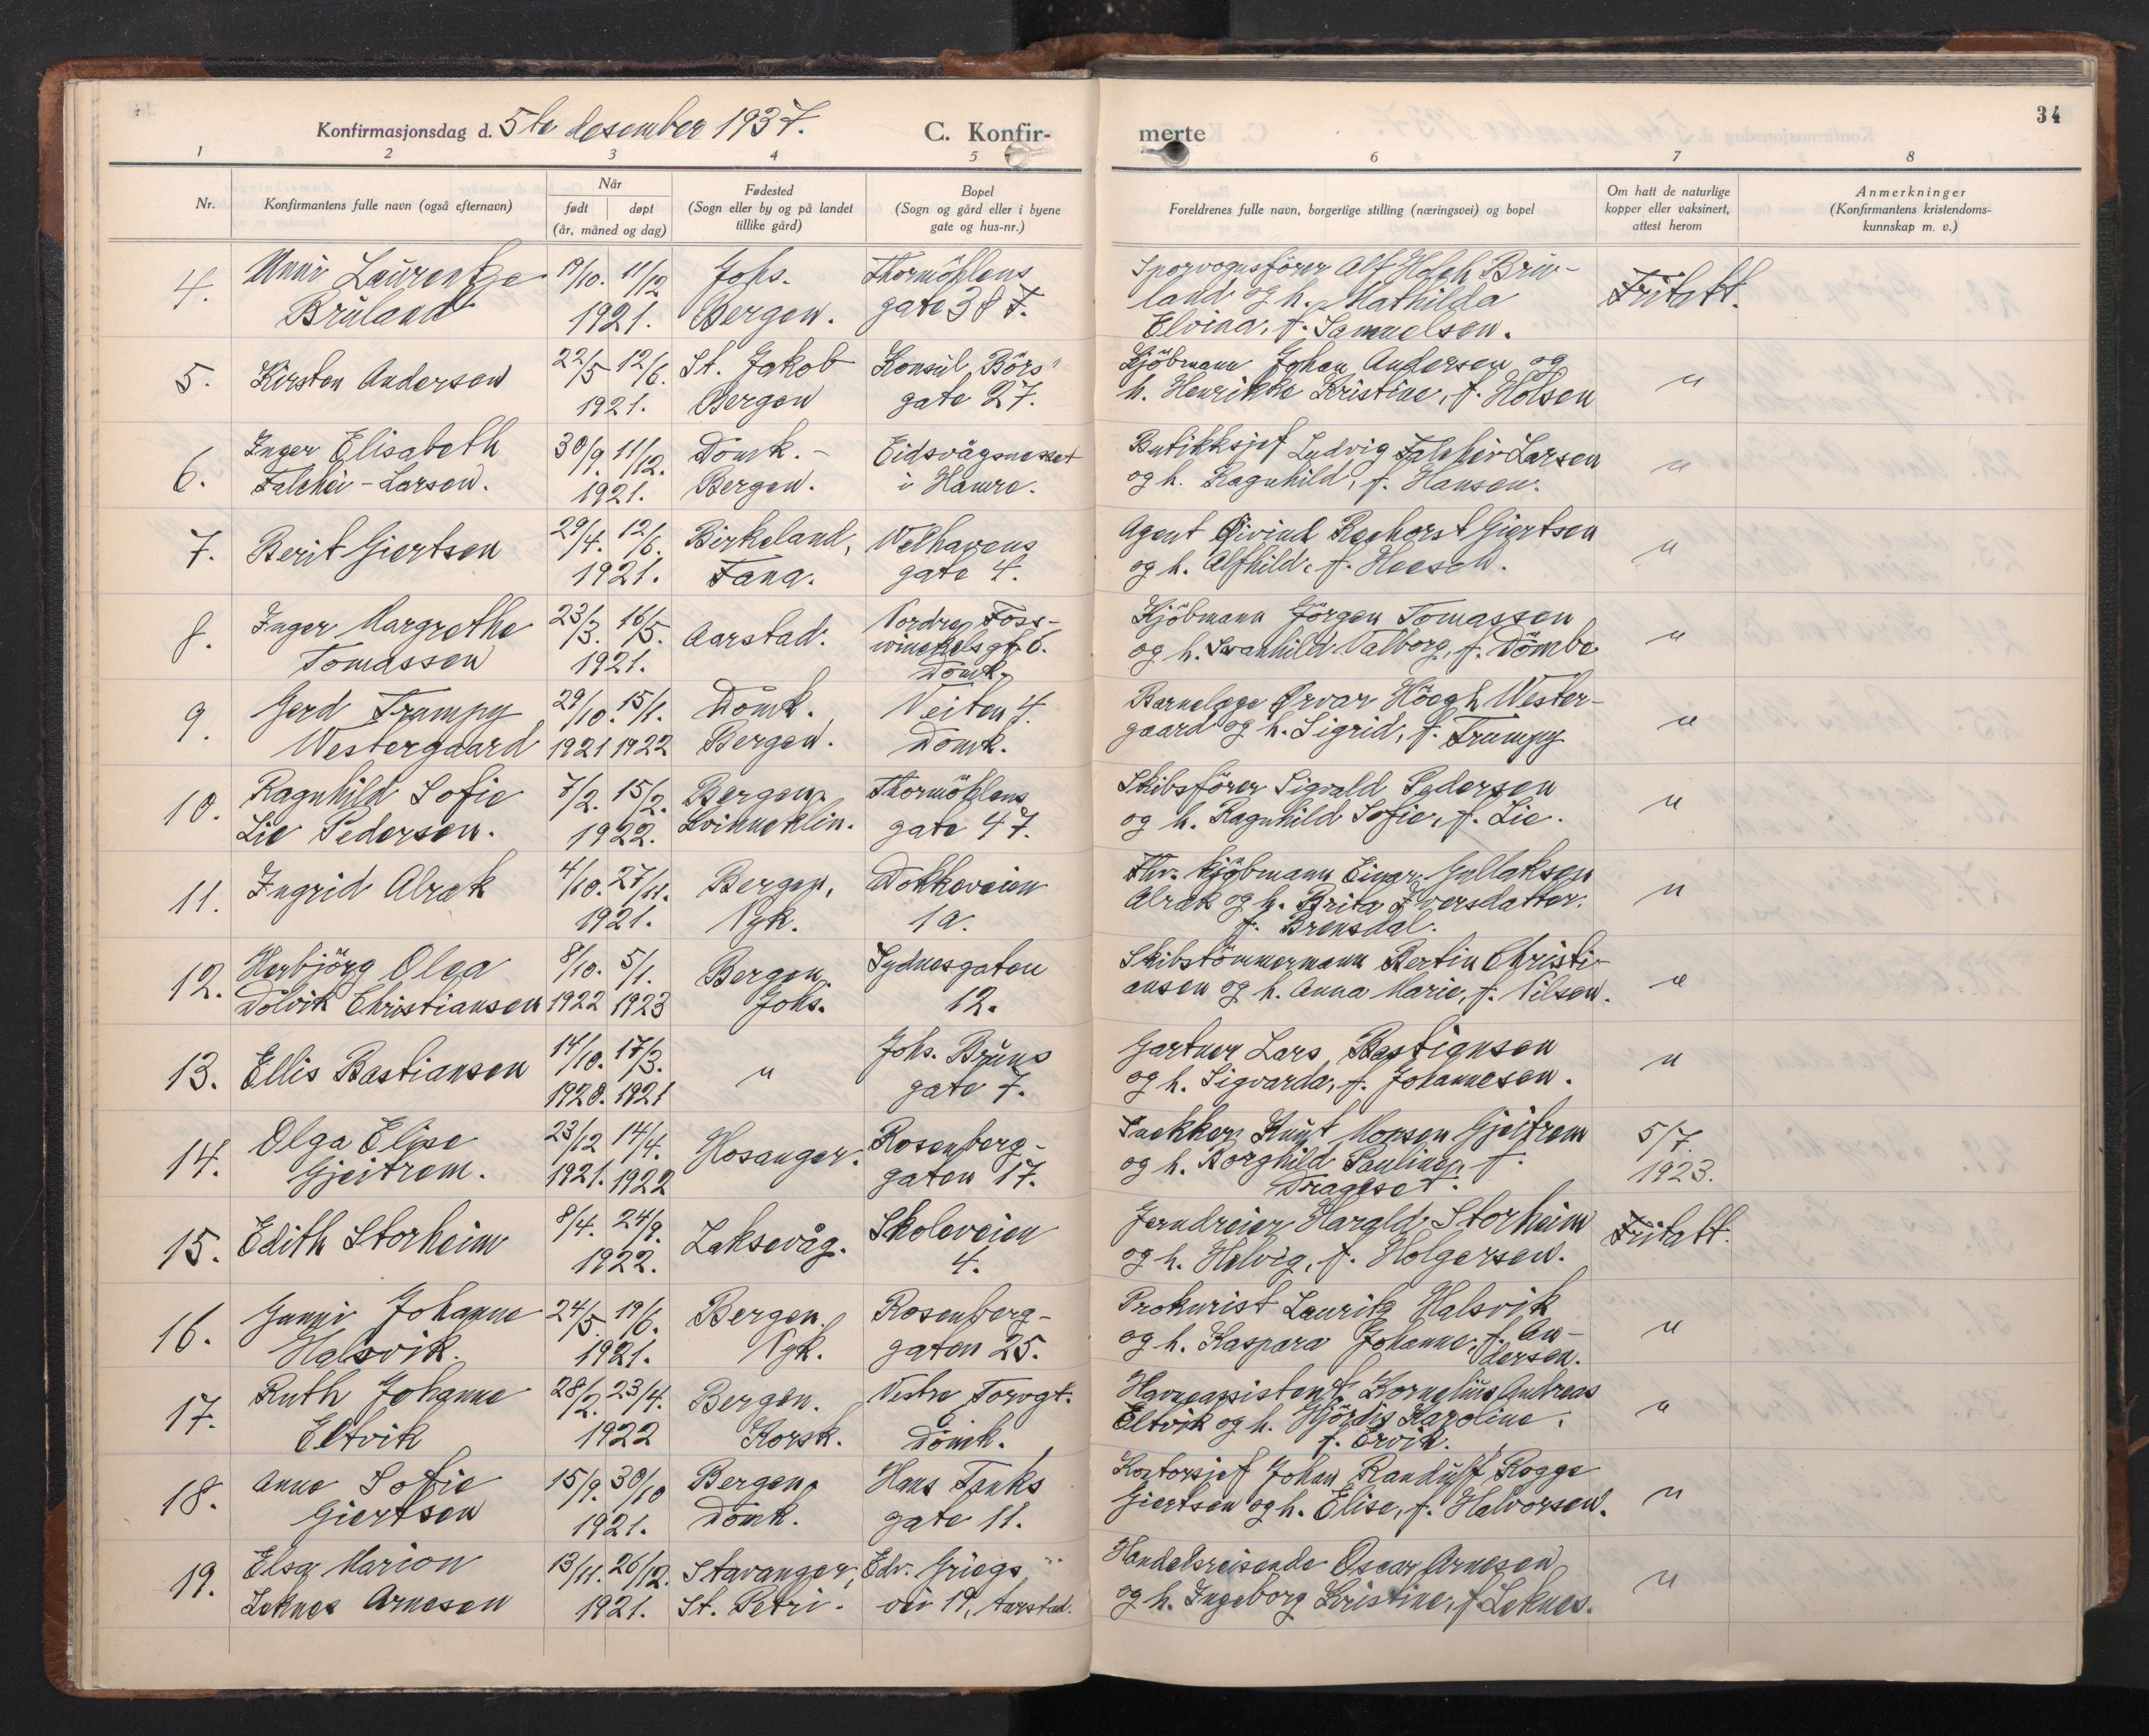 34
Konfirmasjonsdag d. 5te desember 1937.
C. Konfir-
merte
1 2 3 4 5 6 7 8
Nr.
Konfirmantens fulle navn (også efternavn)
Når
født døpt
(år, måned og dag)
Fødested
(Sogn eller by og på landet
tillike gård)
Bopel
(Sogn og gård eller i byene
gate og hus-nr.)
Foreldrenes fulle navn, borgerlige stilling (næringsvei) og bopel
Om hatt de naturlige
kopper eller vaksinert,
attest herom
Anmerkninger
(Konfirmantens kristendoms-
kunnskap m. v.)
4. Unni Laurentze 19/10. 11/12 Johs. Thormöhlens Sporvognsförer Alf Holch Bru-
Bruland 1921. Bergen. gate 38 F. land og h. Mathilda Fritatt.
Elvina, f. Samuelsen.
5. Kirsten Andersen 22/5 12/6. St. Jakob Konsul Börs Kjöbmann Johan Andersen og
1921. Bergen gate 27. h. Henrikke Kristine, f. Holsen "
6. Inger Elisabeth 30/9. 11/12. Domk. - Eidsvågsnesset Butikksjef Ludvig Falchéir Larsen
-Larsen. 1921. Bergen. i Hamre. og h. Ragnhild, f. Hansen. "
7. Berit Giertsen 29/4. 12/6. Birkeland, Welhavens Agent Øivind Giertsen
1921. Fana. gate 4. og h. Alfhild, f. "
8. Inger Margrethe 23/3. 16/5. Aarstad. Nordre Foss- Kjöbmann Jörgen Tomassen
Tomassen 1921. winckelsgt. 6. og h. Svanhild Valborg, f. Dömbe "
Domk.
9. Gerd Trumpy 29/10. 15/1. Domk. Veiten 4. Barnelæge Ørvar Höegh Wester-
Westergaard 1921 1922 Bergen. Domk. gaard og h. Sigrid, f. Trumpy "
10. Ragnhild Sofie 7/2. 15/2. Bergen, Thormöhlens Skibsförer Sigvald Pedersen
Lie Pedersen. 1922. Kvinneklin. gate 47. og h. Ragnhild Sofie, f. Lie. "
11. Ingrid Alrek 4/10. 27/11. Bergen, Dokkeveien Fhv. kjöbmann Einar Gullaksen
1921. Nyk. 1a. Alrek og h. Brita Iversdatter, "
f. Brensdal.
12. Herbjörg Olga 8/10. 5/1. Bergen, Sydnesgaten Skibstömmermann Bertin Christi-
Dolvik Christiansen 1922 1923 Johs. 12. ansen og h. Anna Marie, f. Nilsen. "
13. Ellis Bastiansen 14/10. 17/3. " Johs. Bruns Gartner Lars Bastiansen
1920. 1921 gate 7. og h. Sigvarda, f. Johannesen. "
14. Olga Elise 23/12 14/4. Hosanger. Rosenberg- Snekker Knut Monsen Gjeitrem 5/7.
Gjeitrem. 1921. 1922 gaten 17. og h. Borghild Pauline, f. 1923.
Drageset.
15. Edith Storheim 8/4. 24/9. Laksevåg. Skoleveien Jerndreier Harald Storheim Fritatt.
1922. 4. og h. Helvig, f. Holgersen.
16. Gunni Johanne 24/5. 19/6. Bergen. Rosenberg- Prokurist Lauritz Halsvik
Halsvik. 1921. Nyk. gaten 25. og h. Kaspara Johanne, f. An- "
dersen.
17. Ruth Johanne 28/2. 23/4. Bergen. Vestre Torvgt. Havneassistent Kornelius Andreas
Eltvik 1922 Korsk. 6 Domk. Eltvik og h. Hjördis Karoline, "
f. Ervik.
18. Anne Sofie 15/9. 30/10 Bergen, Hans Tanks Kontorsjef Johan Randulff Rogge
Giertsen 1921. Domk. gate 11. Giertsen og h. Elise, f. Halvorsen. "
19. Elsa Marion 13/11. 26/12. Stavanger, Edv. Griegs Handelsreisende Oscar Arnesen
Leknes Arnesen 1921. St. Petri. vei 19, Aarstad. og h. Ingeborg Kristine, f. Leknes. "